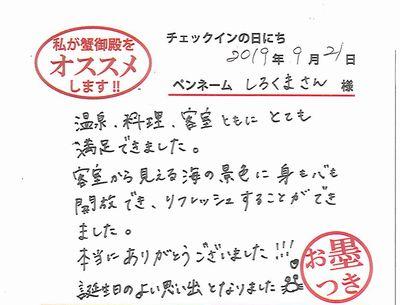 私が蟹御殿を
オススメ
します!!
チェックインの日にち
2019年9月21日
ペンネーム しろくまさん 様
温泉、料理、客室ともに とても
満足できました。
客室から見える海の景色に 身も心も
開放でき、リフレッシュすることができ
ました。
本当にありがとうございました!!!
誕生日のよい思い出となりました
お墨
つき